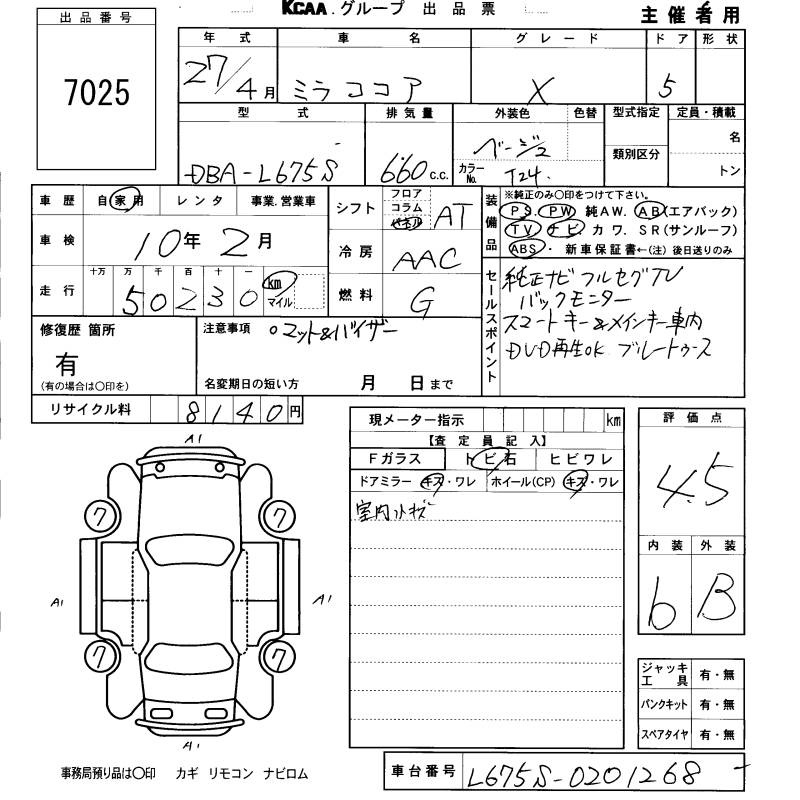 KCAA.グループ 出品票
主催者用
出品番号
7025
年式 車名 グレード ドア 形状
27/4月 ミラ ココア X 5
型式 排気量 外装色 色替 型式指定 定員・積載
DBA-L675S 660c.c. ベージュ カラーNo. T24. 類別区分 名
トン
車歴 自家用 レンタ 事業.営業車
車検 10年2月
走行 十万 万 千 百 十 一 km マイル
50230
シフト フロア コラム パネル AT
冷房 AAC
燃料 G
装備品 ※純正のみ○印をつけて下さい。
PS. PW 純AW. AB(エアバック)
TV ナビ.カワ.SR(サンルーフ)
ABS・ 新車保証書←(注)後日送りのみ
セールスポイント
純正ナビ フルセグTV
バックモニター
スマートキー&メインキー車内
DVD再生OK ブルートゥース
修復歴 箇所
有
(有の場合は○印を)
注意事項 ○マット&バイザー
名変期日の短い方 月 日まで
リサイクル料 8140円
現メーター指示 km
【査定員記入】
Fガラス トビ石 ヒビワレ
ドアミラー キズ・ワレ ホイール(CP) キズ・ワレ
室内小キズ
評価点
4.5
内装 外装
b B
A1
7 7
A1 A1
7 7
A1
ジャッキ工具 有・無
パンクキット 有・無
スペアタイヤ 有・無
事務局預り品は○印 カギ リモコン ナビロム
車台番号 L675S-0201268